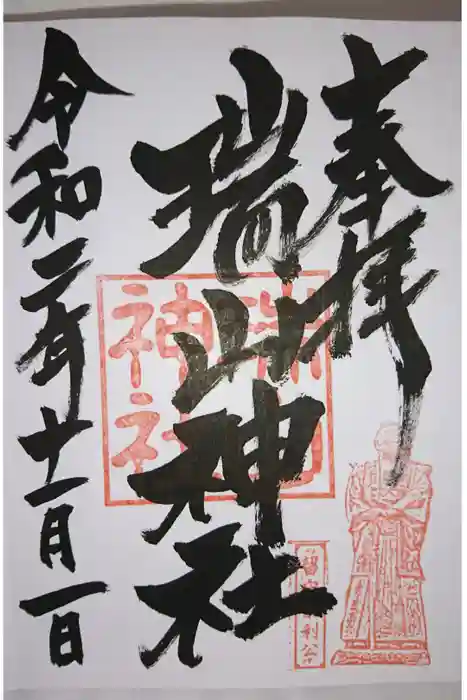 奉拝
瑞山神社
令和二年十一月一日
瑞山神社